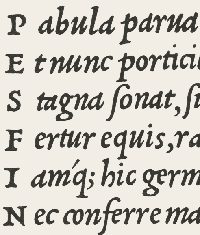 P abula parua
E t nunc portici
S tagna ſonat, ſi
F ertur equis, ra
I amq́; hic germ
N ec conferre ma